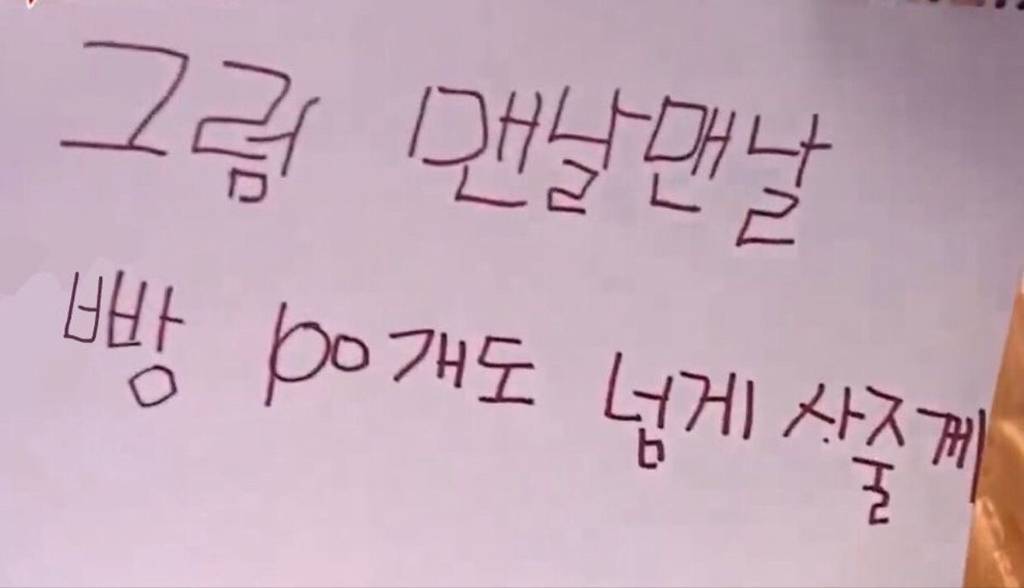 그럼 맨날맨날
빵 100개도 넘게 사줄께